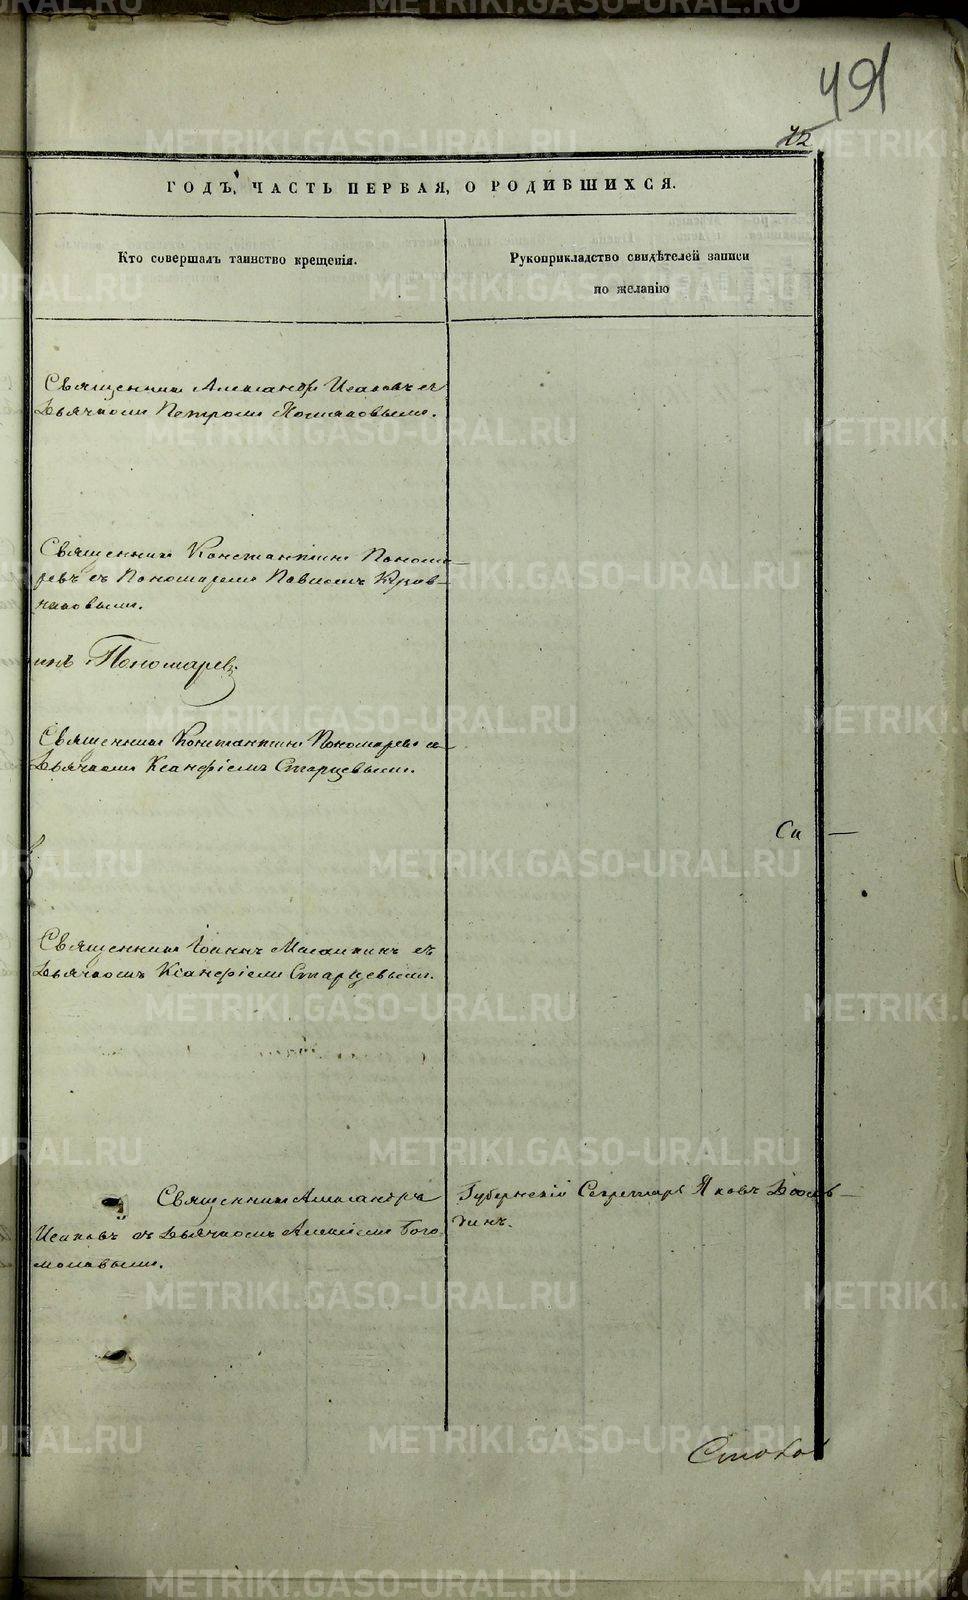 491
12
ГОДЪ, ЧАСТЬ ПЕРВАЯ, О РОДИВШИХСЯ.
Кто совершалъ таинство крещенія.
Рукоприкладство свидѣтелей записи
по желанію
Священникъ Александръ Исаковъ съ
Дьячкомъ Петромъ
Священникъ Константинъ Понома-
ревъ съ Пономаремъ Павломъ
инъ Пономаревъ
Священникъ Константинъ Пономаревъ съ
Дьячкомъ Ксанфіемъ Старцевымъ.
Си
Священникъ Іоаннъ съ
Дьячкомъ Ксанфіемъ Старцевымъ.
Священникъ Александръ
Исаковъ съ Дьячкомъ Алексіемъ Бого-
моловымъ.
Губернскій Секретарь Яковъ
METRIKI.GASO-URAL.RU